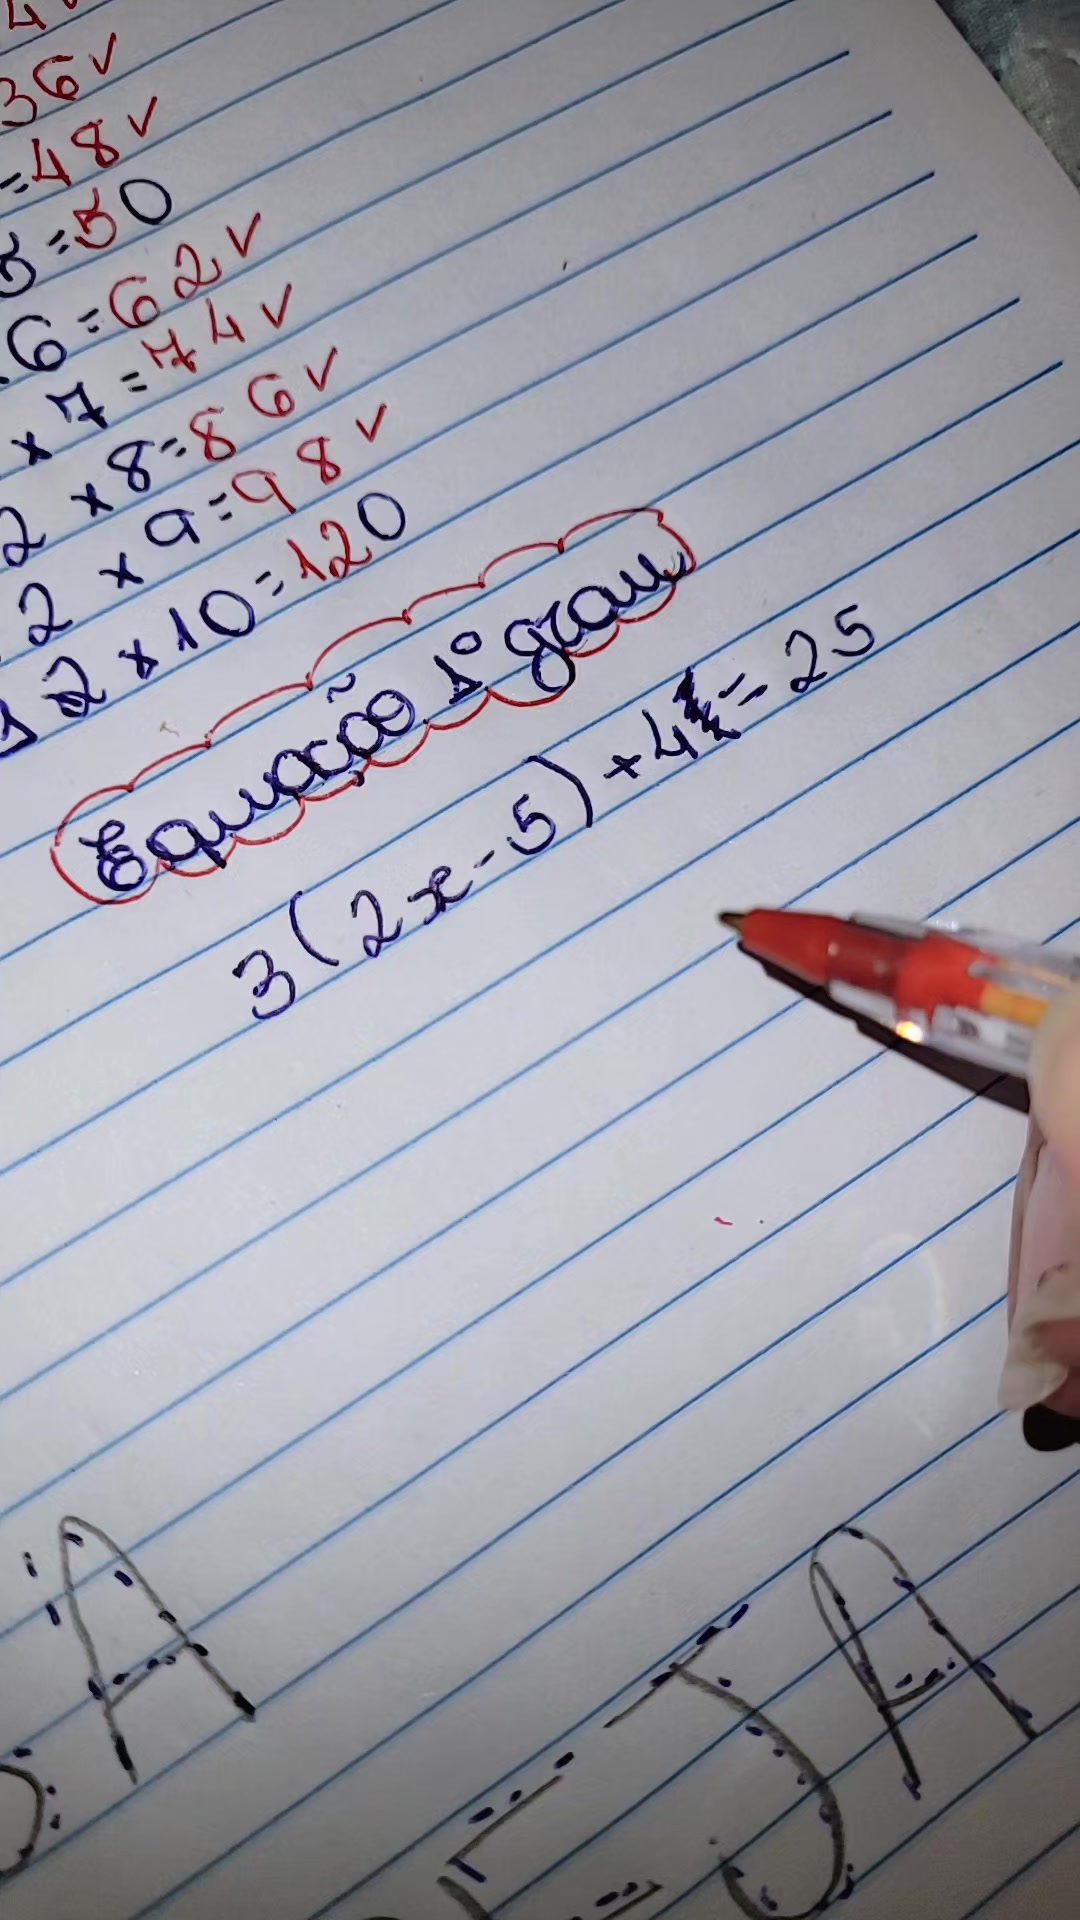 4✓
36✓
=48✓
5=50
.6=62✓
×7=74✓
2×8=86✓
2×9=98✓
12×10=120
Equação 1º grau
3(2x-5)+4=25
A
JA